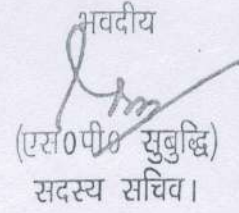 भवदीय
(एस0पी0 सुबुद्धि)
सदस्य सचिव।